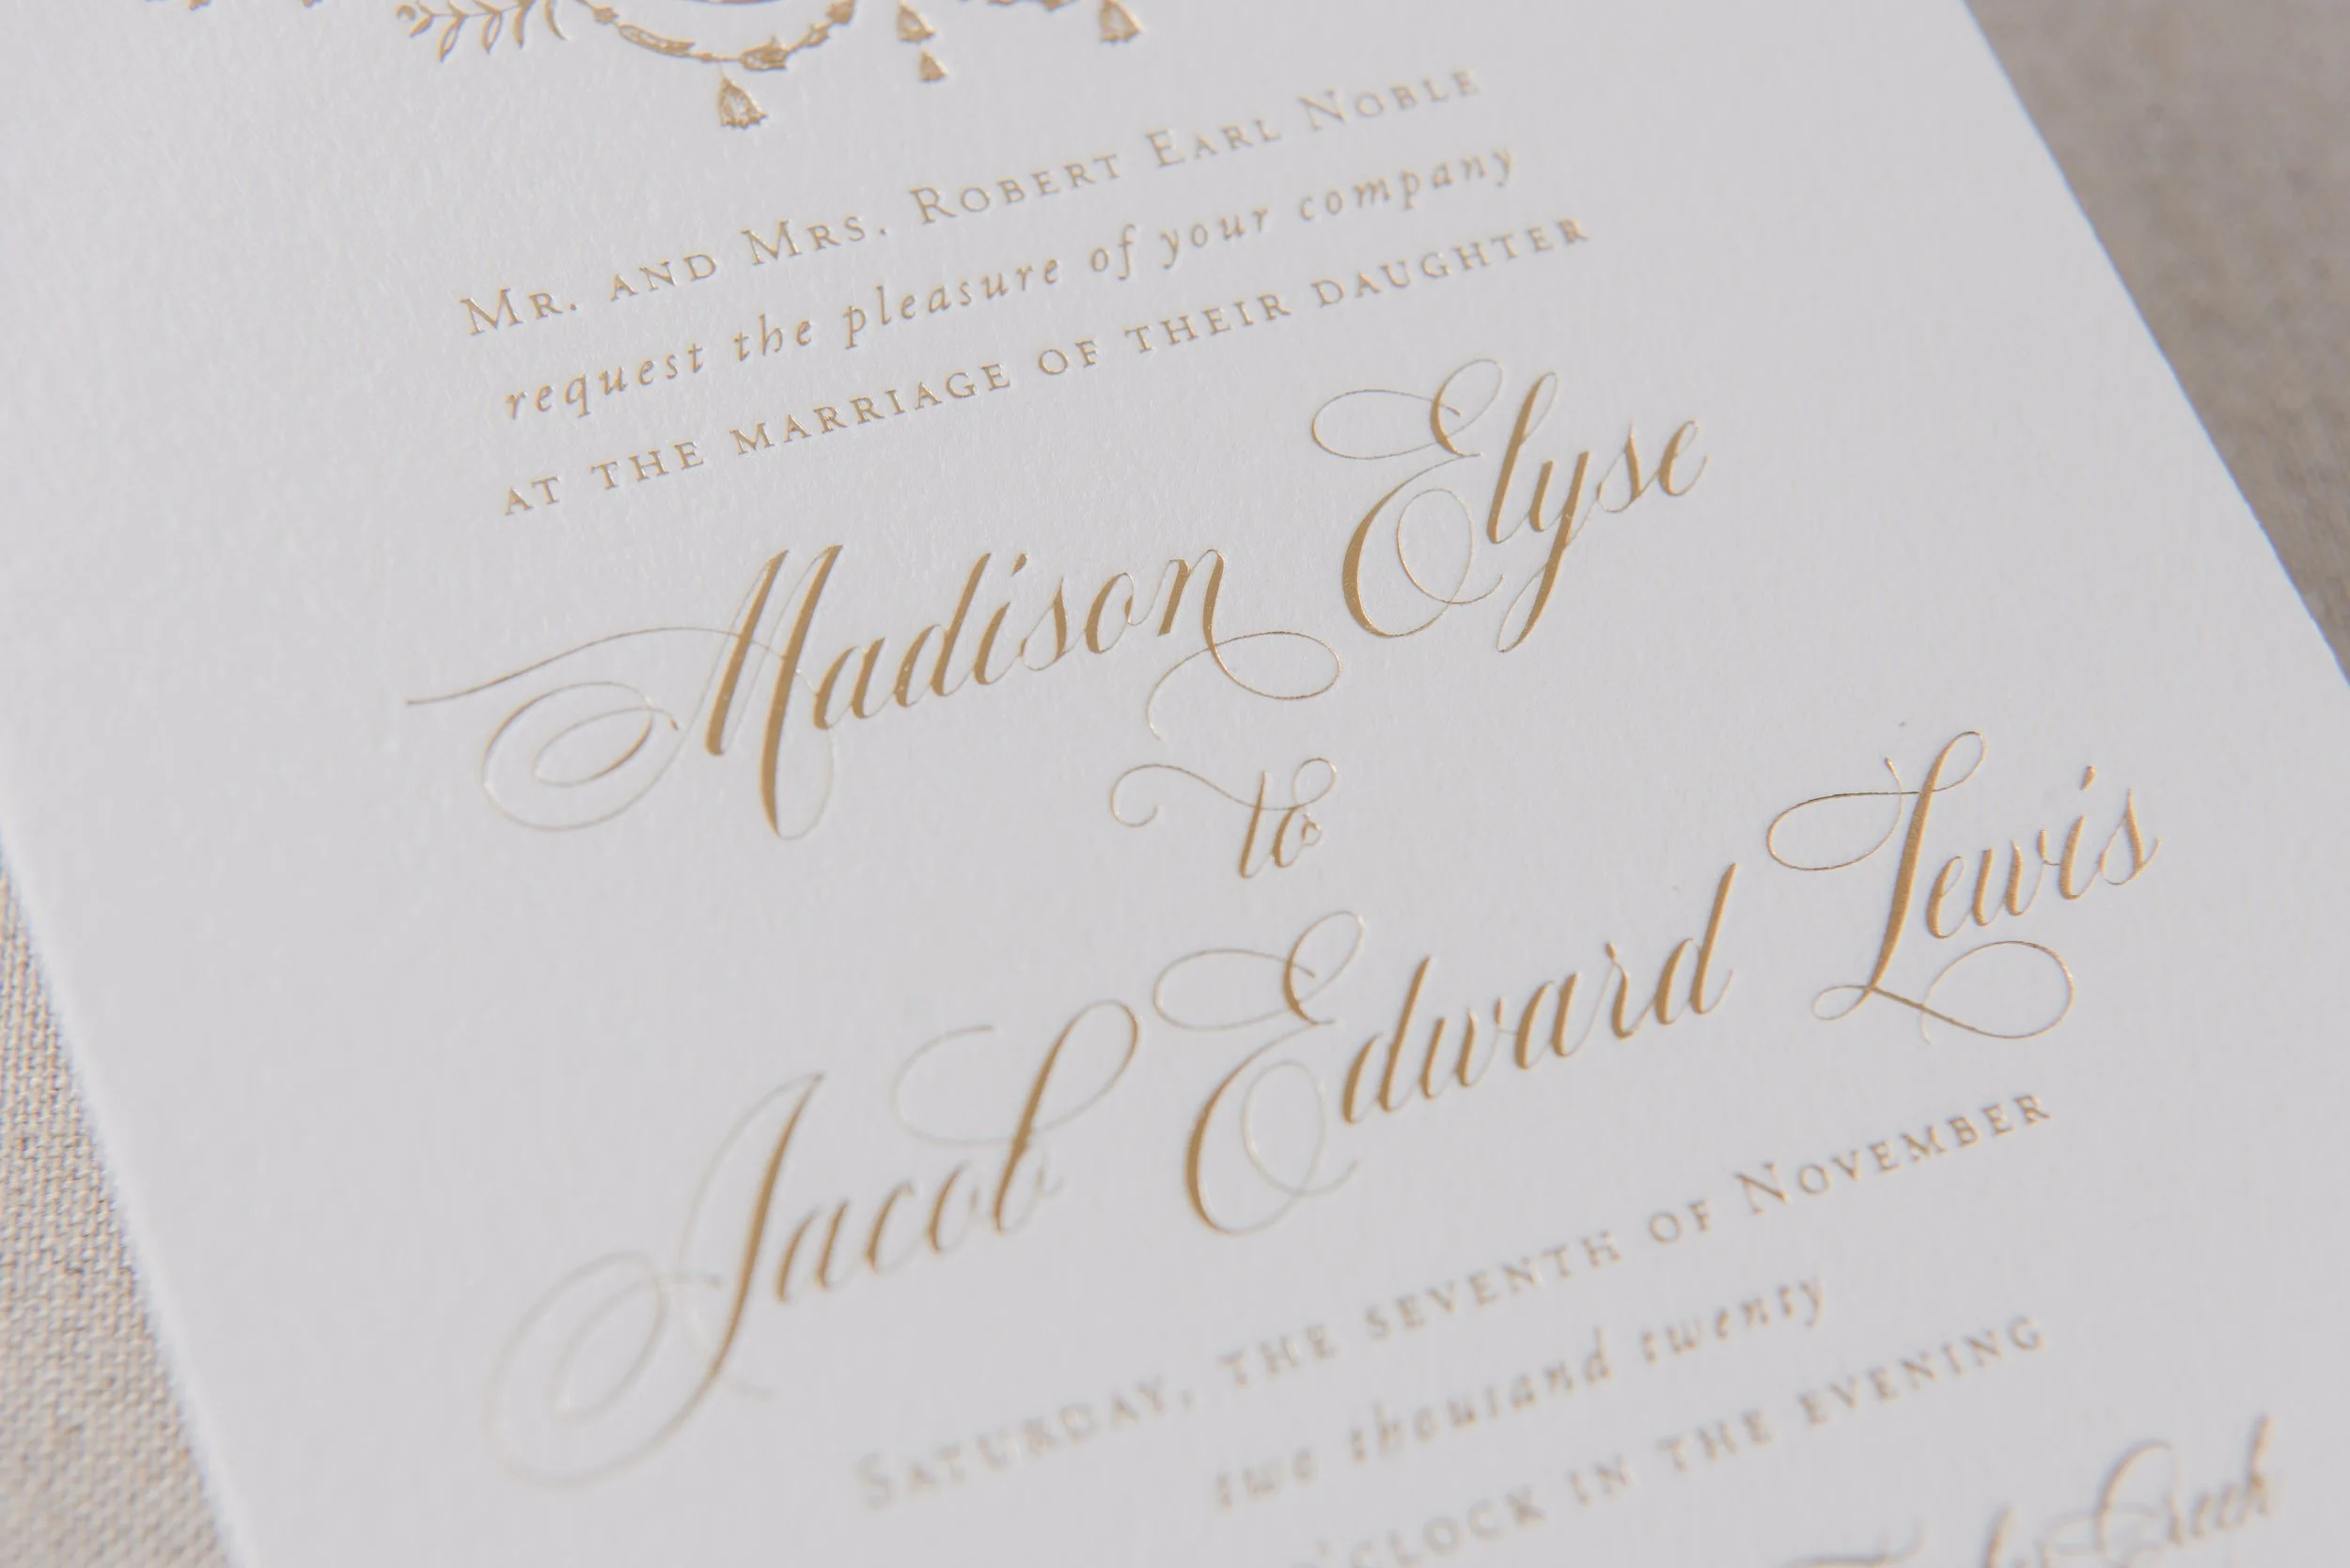 Mr. and Mrs. Robert Earl Noble
request the pleasure of your company
at the marriage of their daughter
Madison Elyse
to
Jacob Edward Lewis
Saturday, the seventh of November
two thousand twenty
o'clock in the evening
Creek